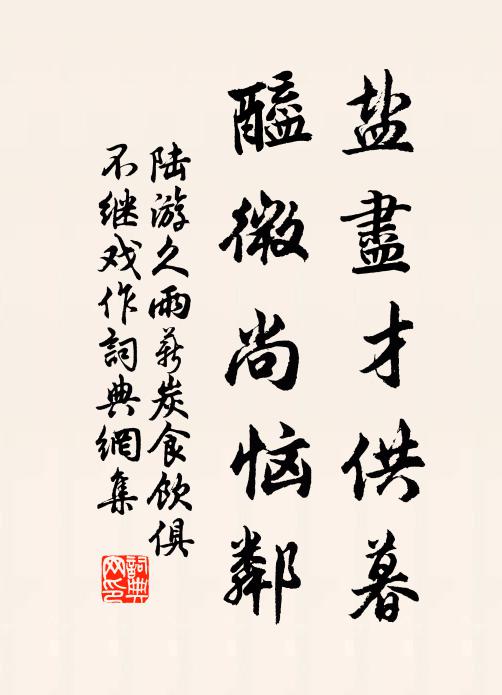 盐尽才供暮
醯微尚恼鄰
陆游久雨薪炭食飲俱
不继戏作詞典網集
詞典
网印